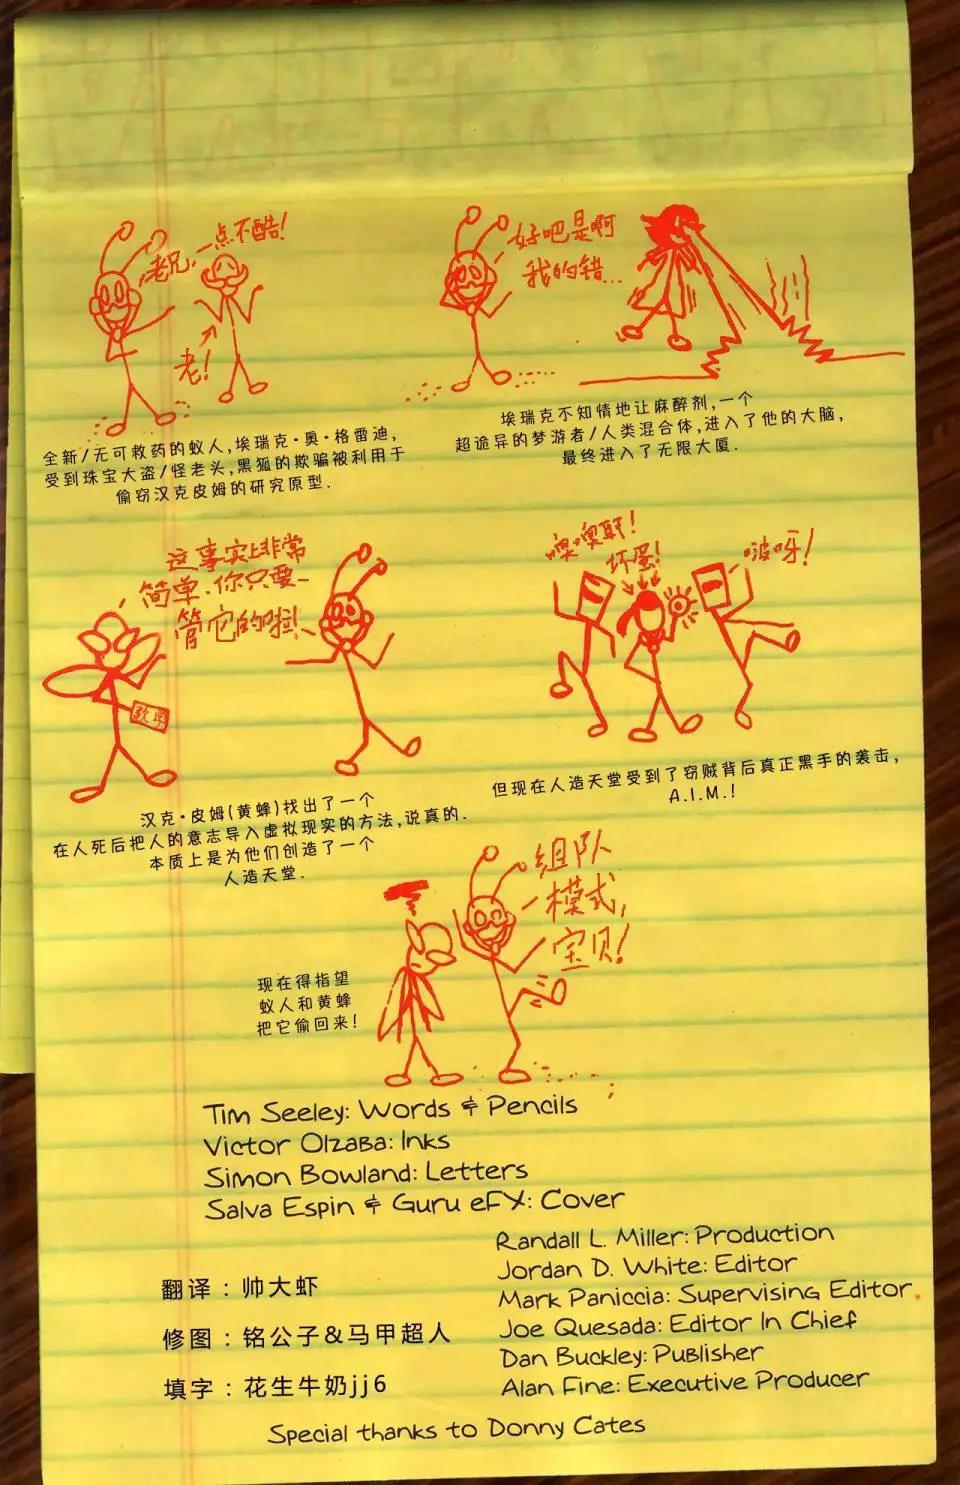 老兄,一点不酷!
老!
全新/无可救药的蚁人,埃瑞克·奥·格雷迪,
受到珠宝大盗/怪老头,黑狐的欺骗被利用于
偷窃汉克皮姆的研究原型.
好吧是啊
我的错...
埃瑞克不知情地让麻醉剂,一个
超诡异的梦游者/人类混合体,进入了他的大脑,
最终进入了无限大厦.
这事实上非常
简单.你只要一
管它的啦!
汉克·皮姆(黄蜂)找出了一个
在人死后把人的意志导入虚拟现实的方法,说真的.
本质上是为他们创造了一个
人造天堂.
噢噢耶!
坏蛋!
啵呀!
但现在人造天堂受到了窃贼背后真正黑手的袭击,
A.I.M.!
组队
模式,
宝贝!
现在得指望
蚁人和黄蜂
把它偷回来!
Tim Seeley: Words & Pencils
Victor Olzaba: Inks
Simon Bowland: Letters
Salva Espin & Guru eFX: Cover
Randall L. Miller: Production
Jordan D. White: Editor
Mark Paniccia: Supervising Editor
Joe Quesada: Editor In Chief
Dan Buckley: Publisher
Alan Fine: Executive Producer
翻译：帅大虾
修图：铭公子&马甲超人
填字：花生牛奶jj6
Special thanks to Donny Cates